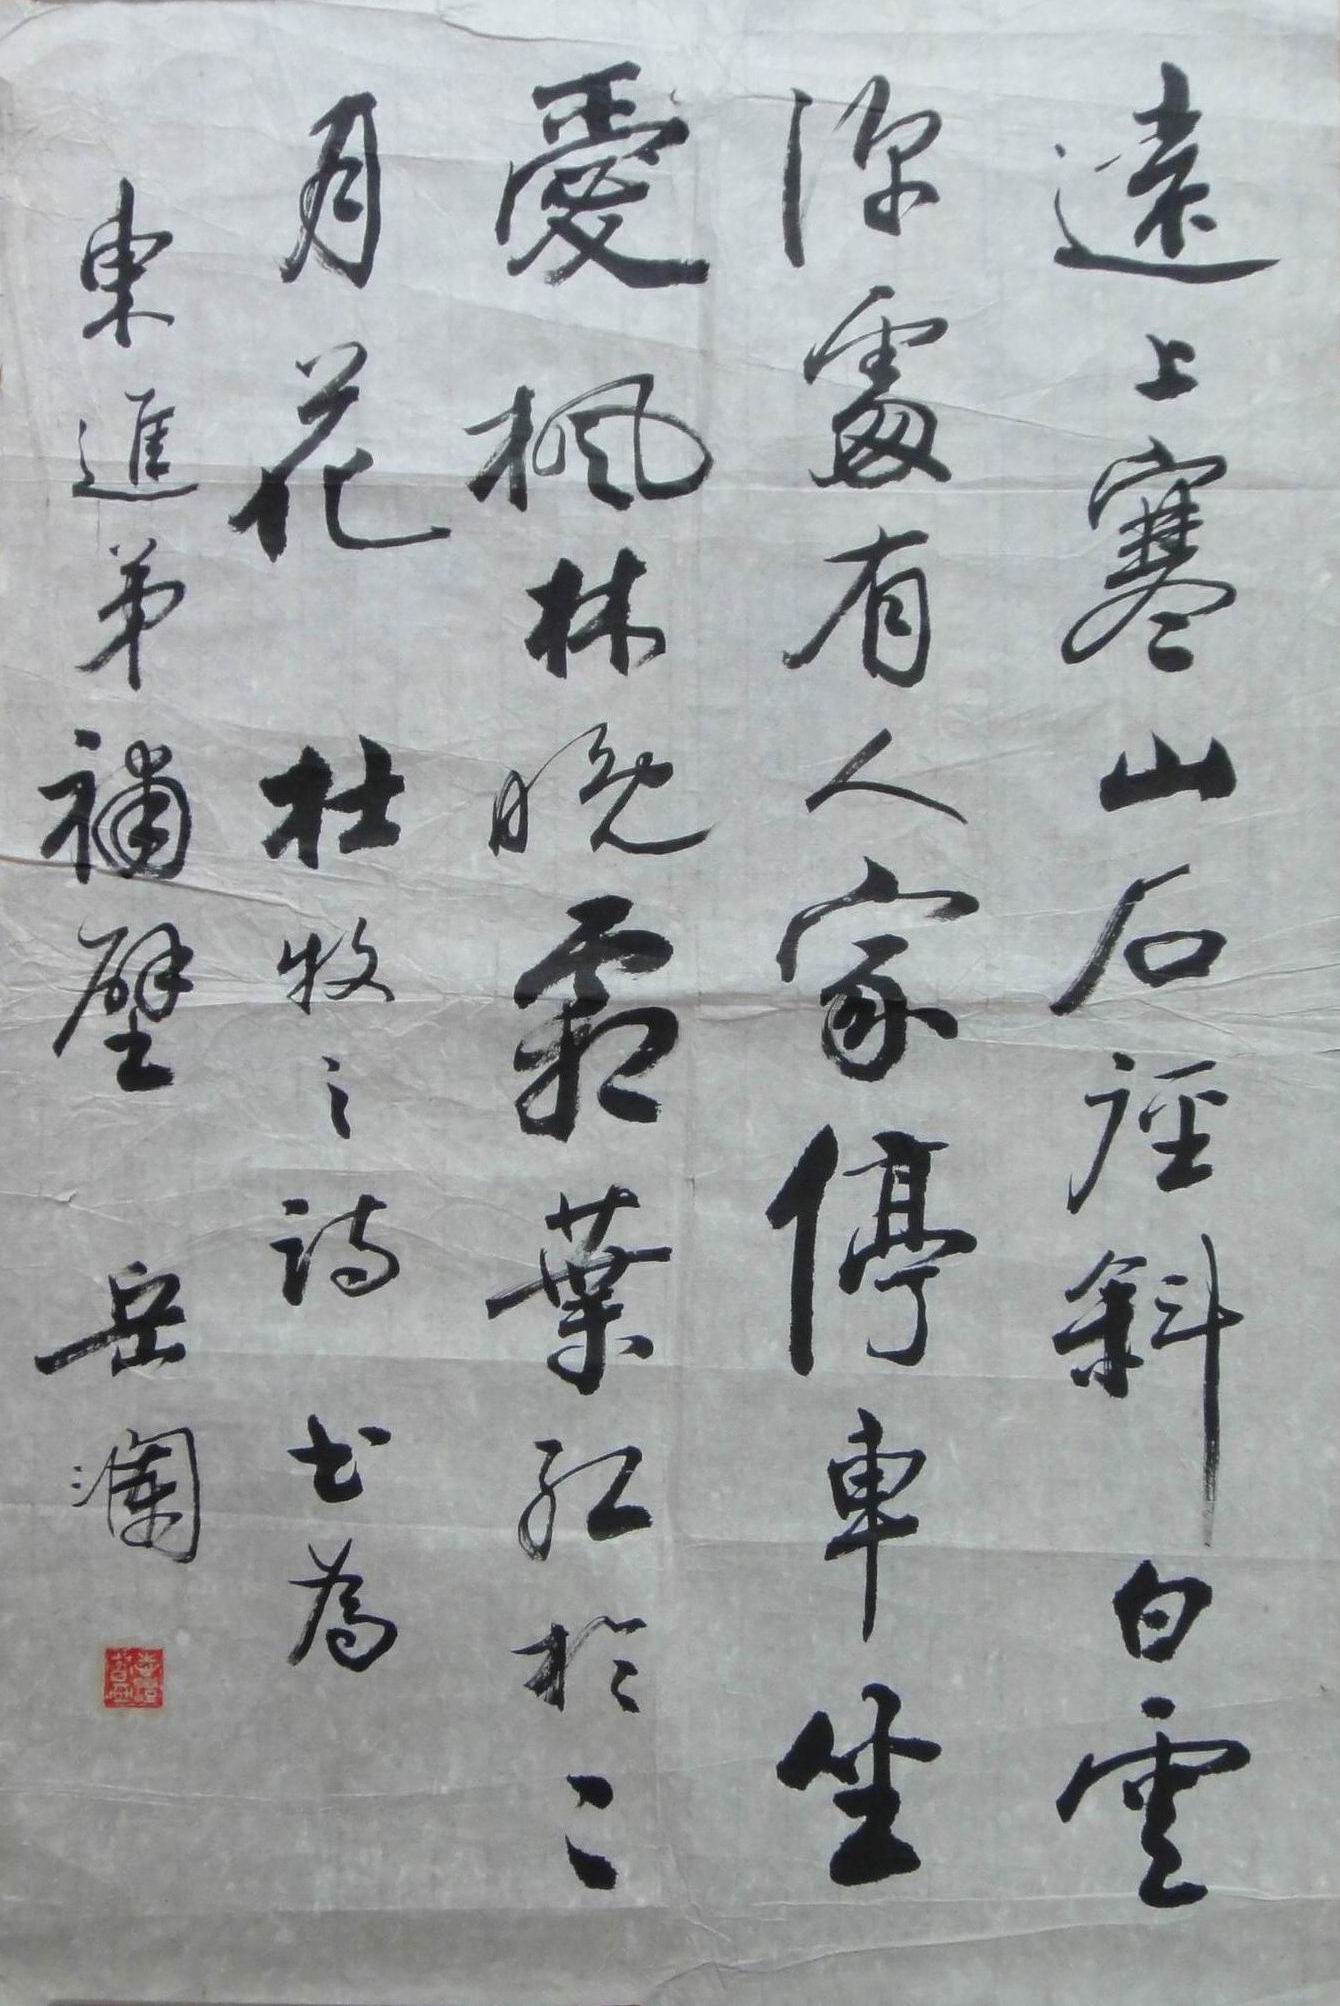 遠上寒山石徑斜白雲
深處有人家停車坐
愛楓林晚霜葉紅於二
月花 杜牧之詩 書為
東進弟補壁 岳瀾